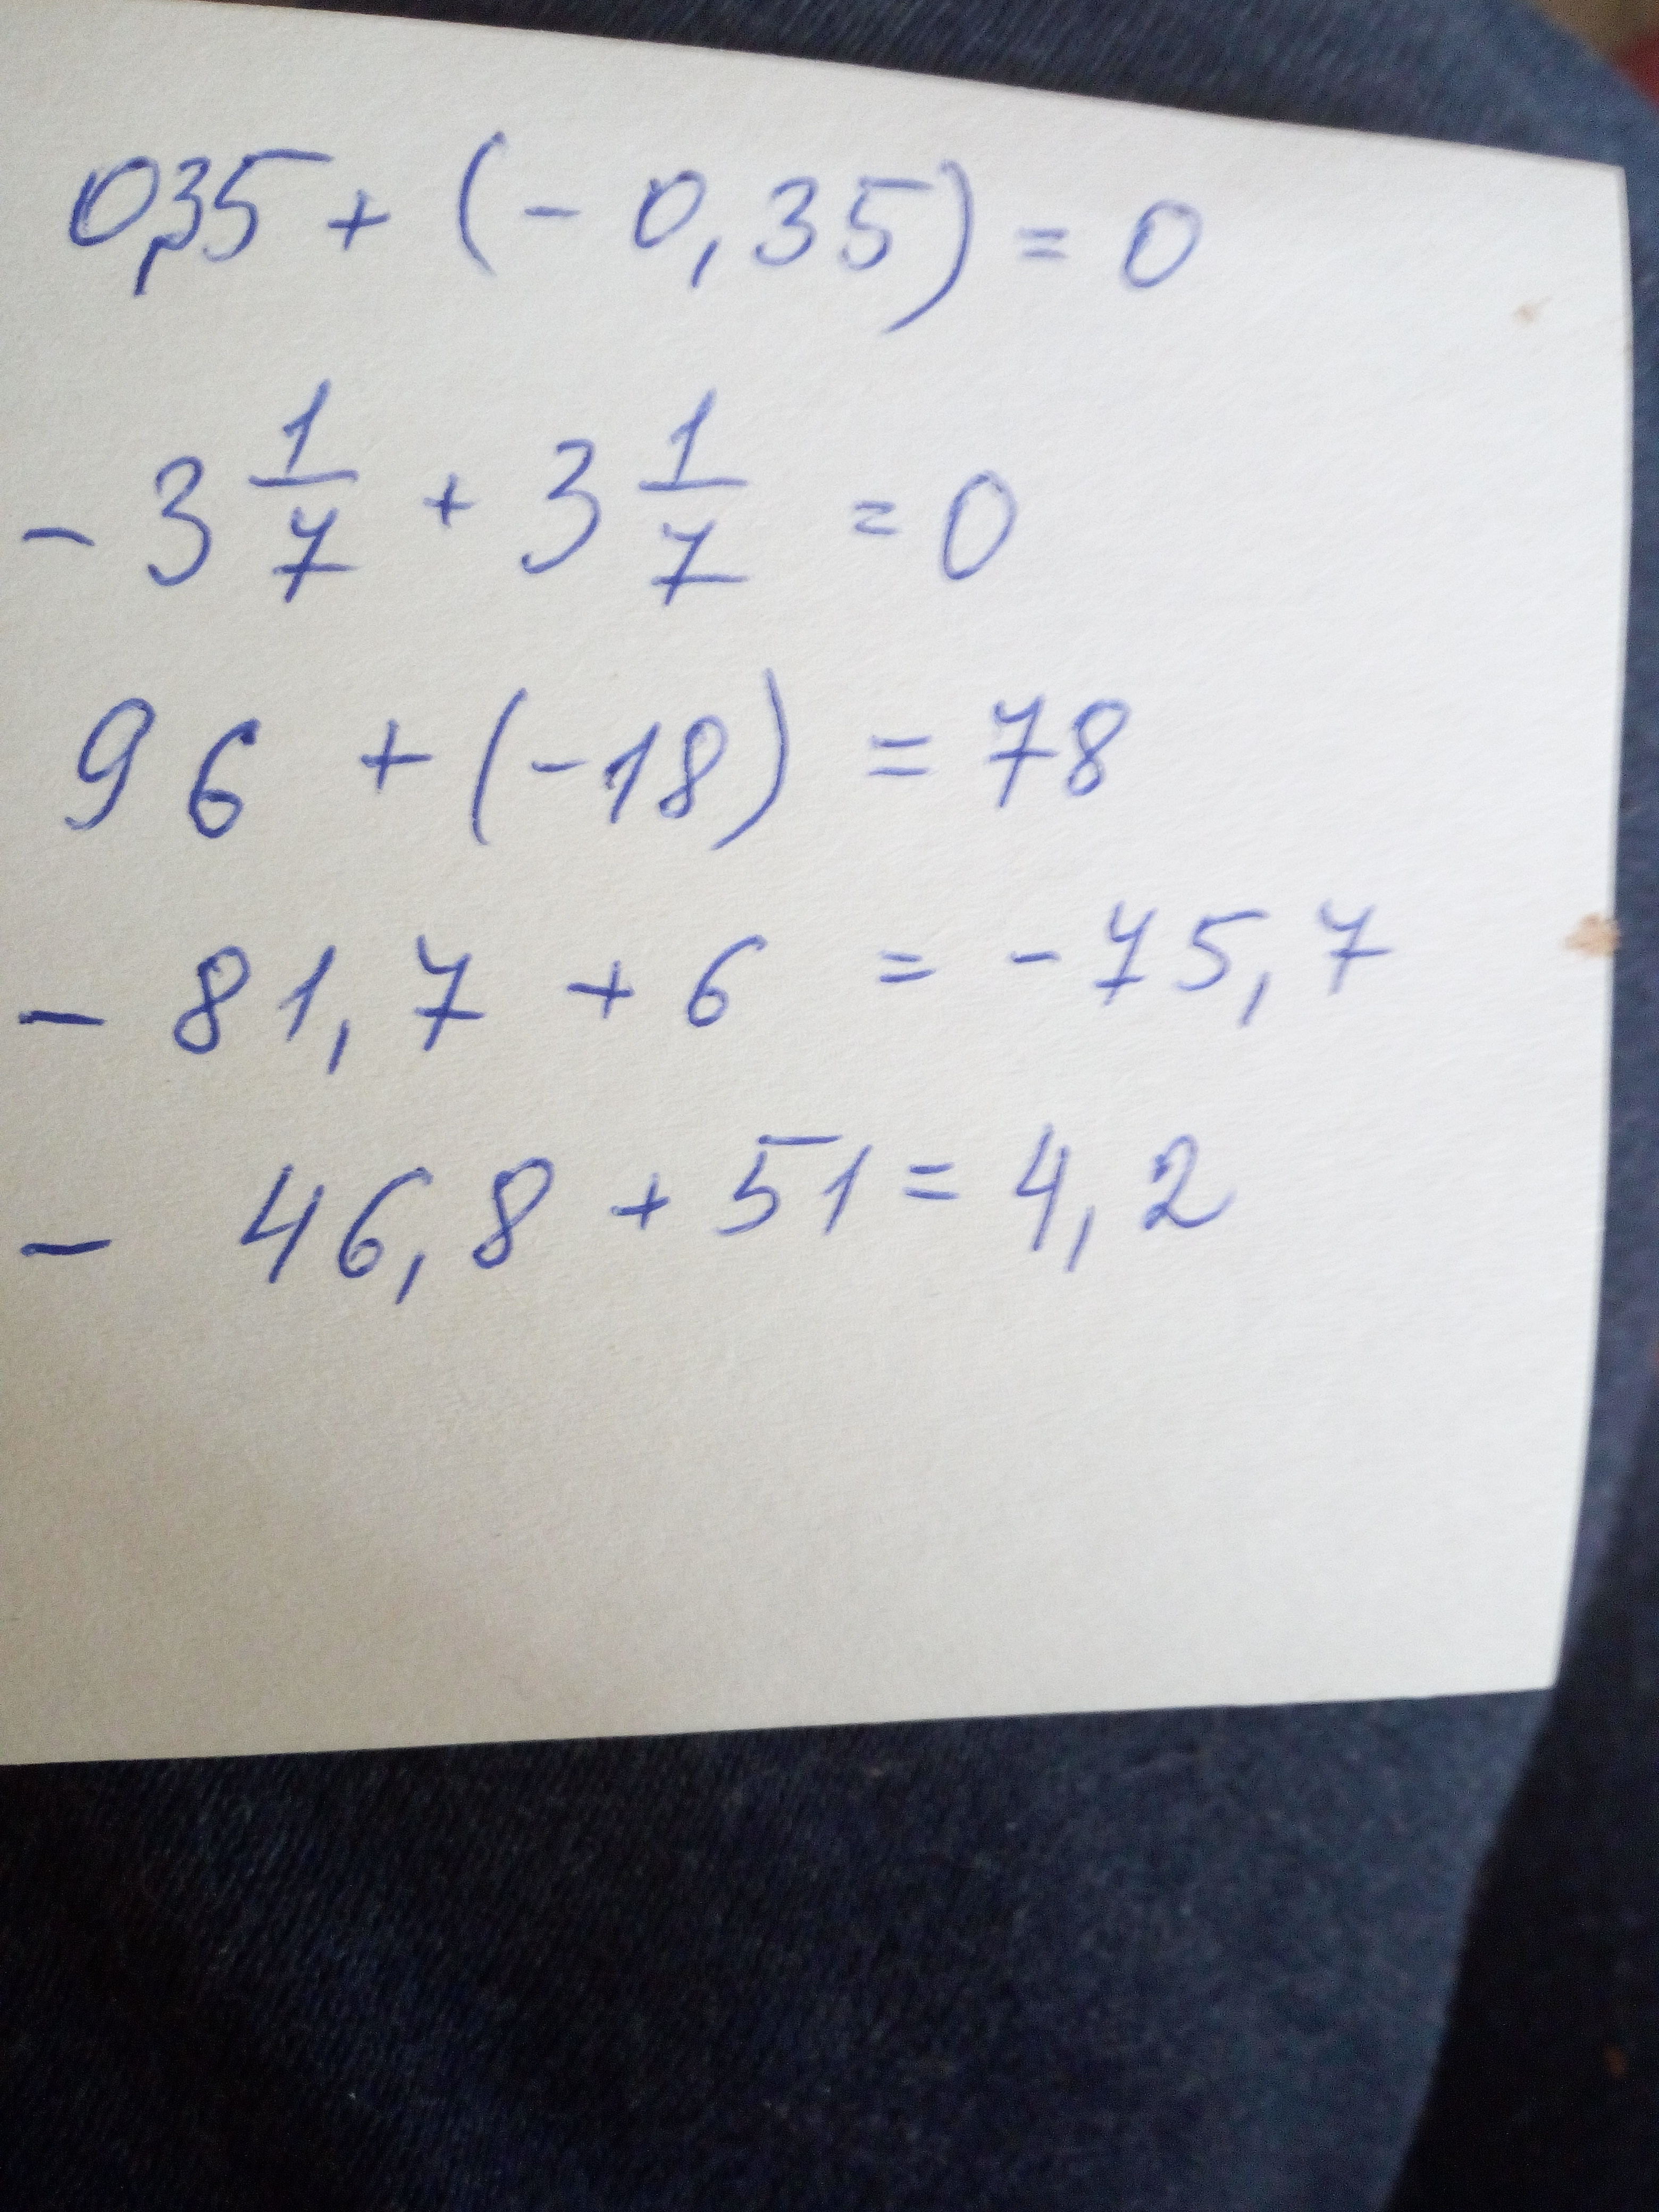 0,35 + (- 0,35) = 0
- 3 1/7 + 3 1/7 = 0
96 + (-18) = 78
- 81,7 + 6 = - 75,7
- 46,8 + 51 = 4,2